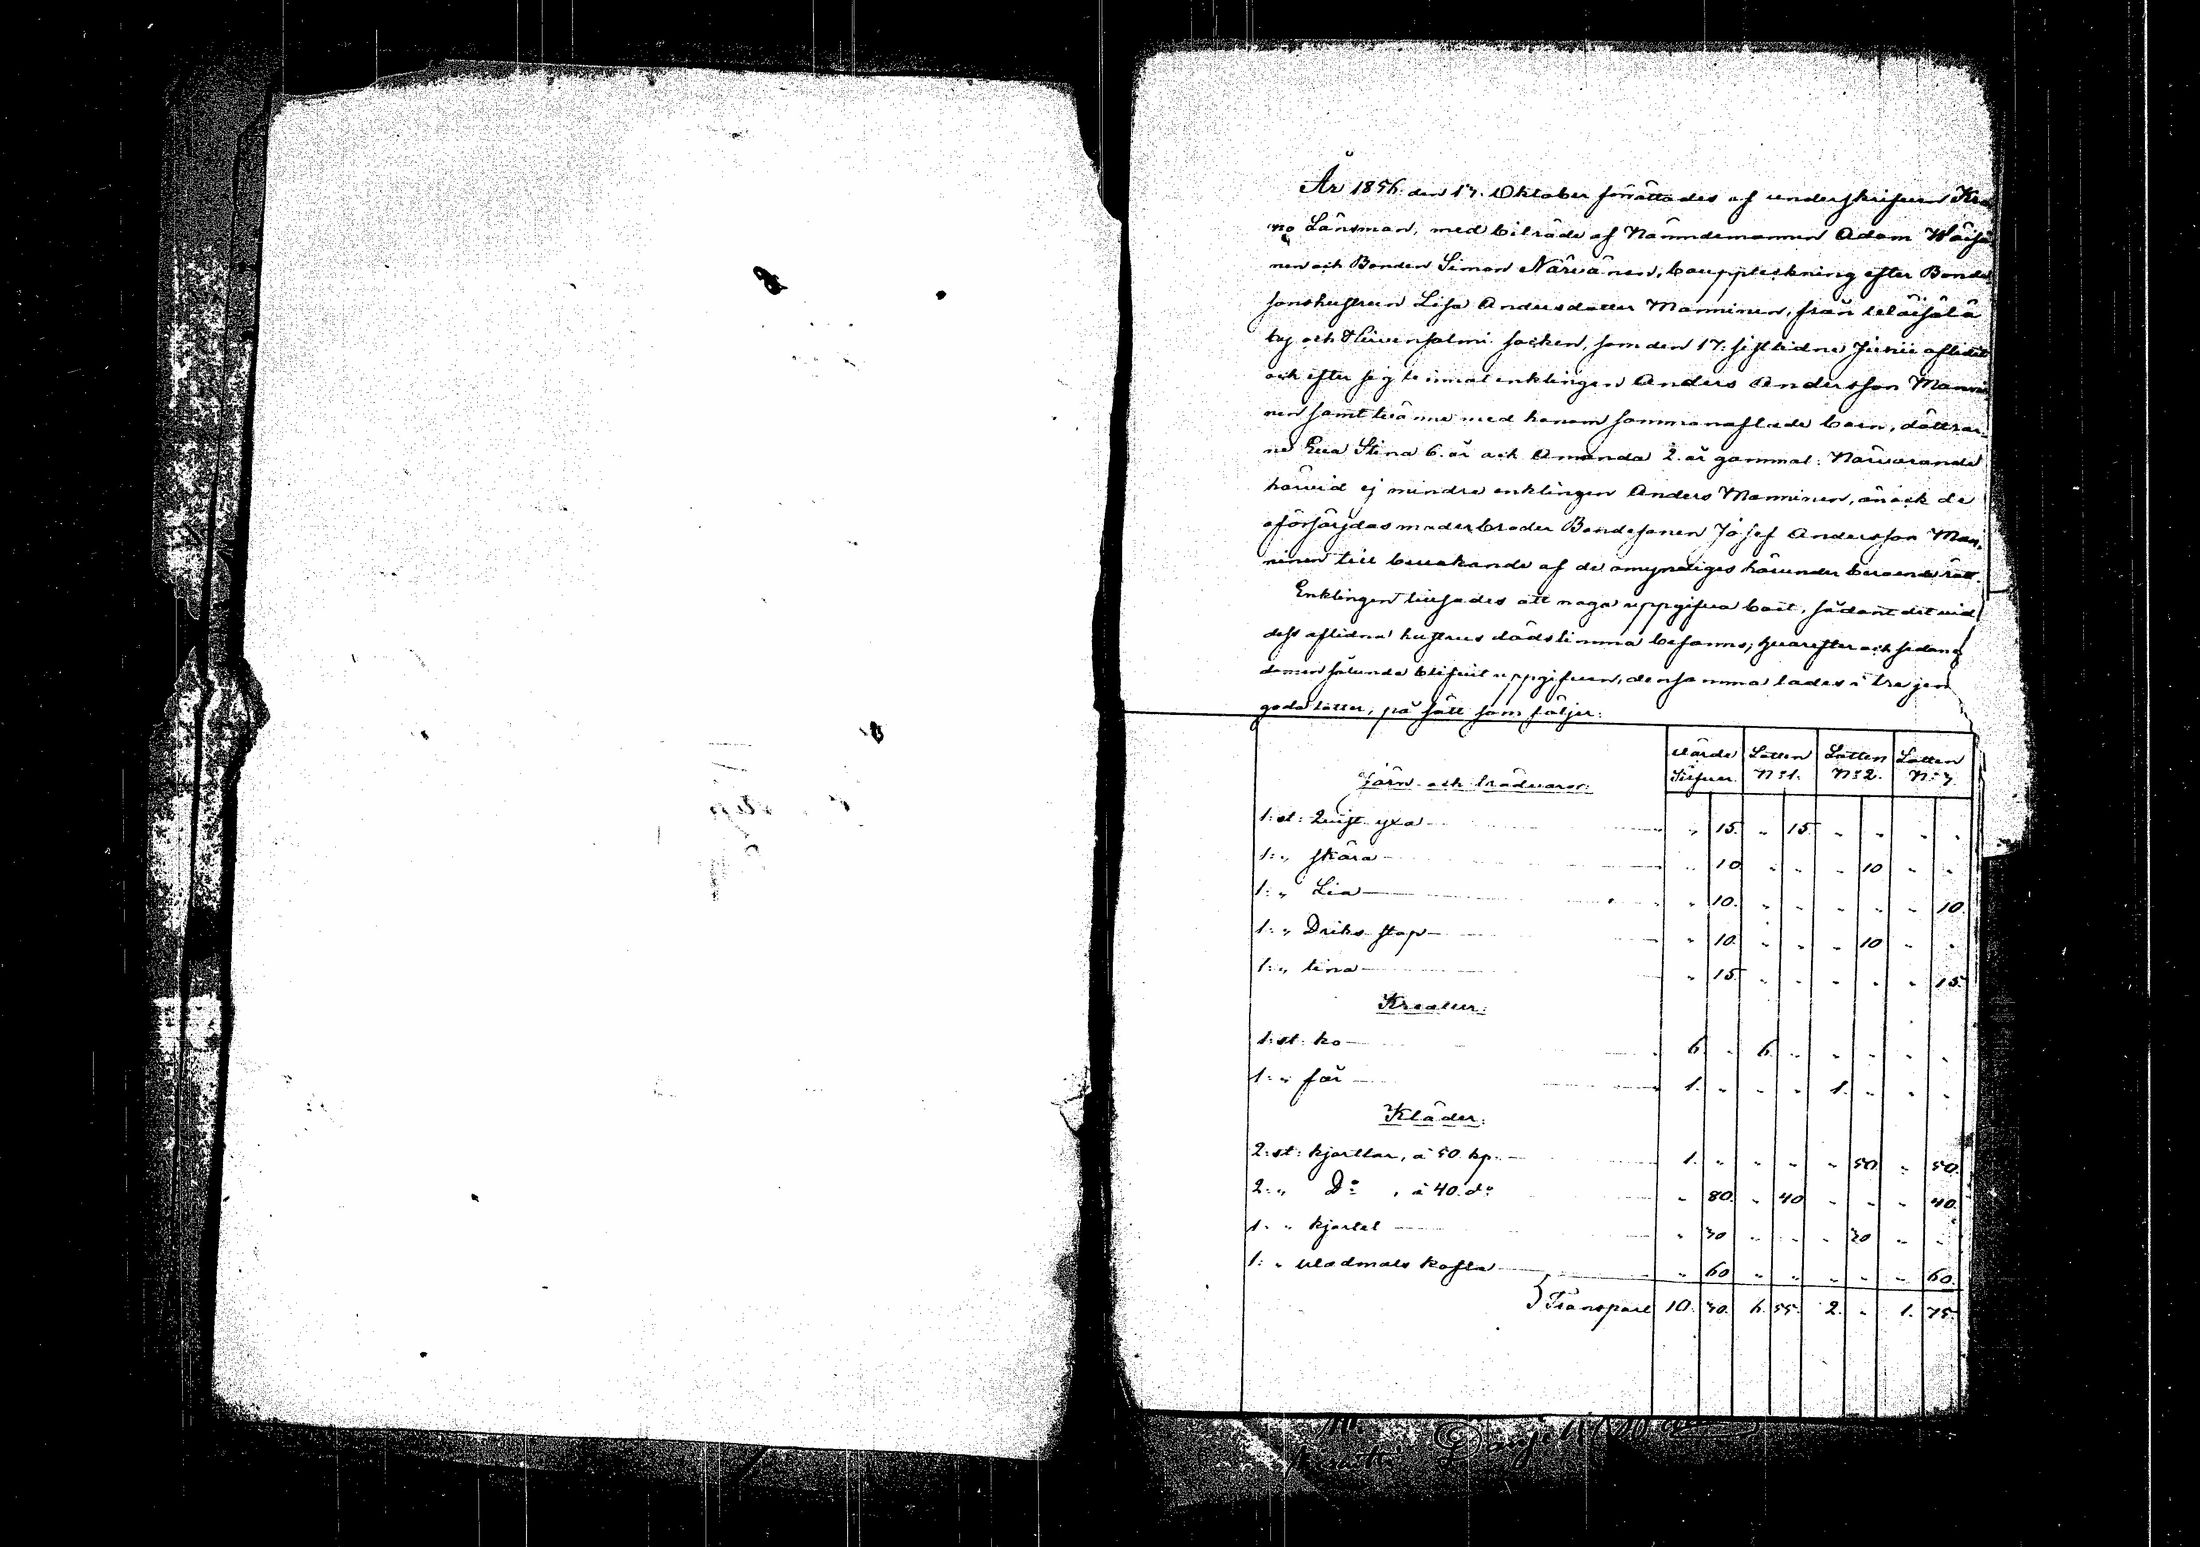 År 1856. den 17. Oktober förrättades af underskrifven Kro
no Länsman, med biträde af Nämndemannen Adam Wäisä
nen och Bonden Simon Närvänen, bouppteckning efter Bonde
sonshustrun Lisa Andersdotter Manninen, från
by och Idensalmi socken, som den 17. sistledne Junii aflidit
och efter sig lemnat enklingen Anders Andersson Manni
nen samt tvänne med honom sammanaflade barn, döttrar
ne Eva Stina 6. år och Amanda 2. år gammal. Närvarande
härvid ej mindre enklingen Anders Manninen, än ock de
oförsörjdas moderbroder Bondesonen Josef Andersson Man
ninen till bevakande af de omyndiges härunder beroende rätt.
Enklingen tillsades att noga uppgifva boet, sådant det vid
dess aflidna hustrus dödstimma befanns; hvarefter och sedan
domen sålunda blifvit uppgifven, densamma lades i tre jem
goda lotter, på sätt som följer:
Värde Lotten Lotten Lotten
Järn och trädvaror: Silfver. N:o 1. N:o 2. N:o 3.
1: st: Qvist yxa " 15. " 15. " " " "
1: " skära " 10 " " " 10 " "
1: " Lia " 10. " " " " " 10.
1: " Driks stop " 10. " " " 10 " "
1: " tina " 15. " " " " " 15.
Kreatur:
1: st: ko 6. " 6. " " " " "
1: " får 1. " " " 1. " " "
Kläder:
2: st: kjortlar, á 50. kp. 1. " " " " 50. " 50.
2: " D:o , á 40. d:o " 80. " 40 " " " 40.
1: " kjortel " 30 " " " 30 " "
1: " vadmals kofta " 60 " " " " " 60.
Transport 10. 30. 6. 55. 2. " 1. 75.